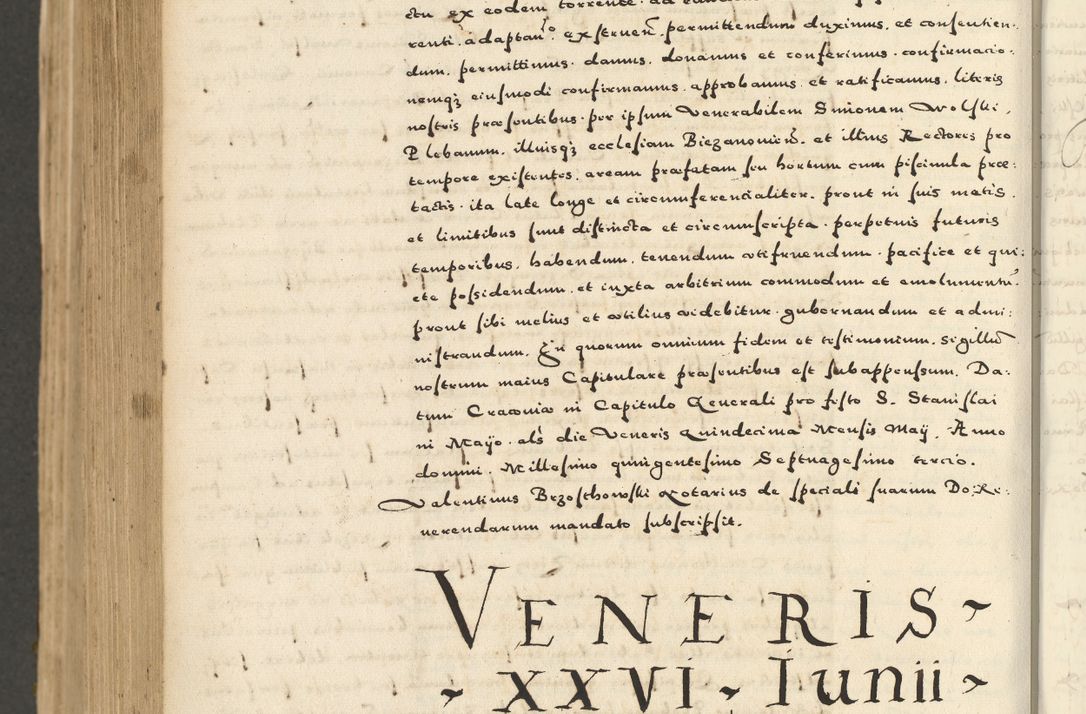 ctu ex eodem torrente. ad
renti. adaptan̄o extruen̄. permittendum duximus, et consentien:
dum, permittimus. damus, donamus et conferimus. confirmacio:
nemqȝ eiusmodi confirmamus. approbamus. et ratificamus. literis
nostris præsentibus. per ipsum Venerabilem Simonem Wolski,
Plebanum. illiusqȝ ecclesiam Biezanouien̄. et illius Rectores pro
tempore existentes. aream præfatam seu hortum cum piscinula præ:
tactis. ita late longe et circumferencialiter. prout in suis metis.
et limitibus sunt distincta et circumscripta. perpetuis futuris
temporibus. habendum. tenendum vtifruendum. pacifice et qui:
ete possidendum. et iuxta arbitrium commodum et emolumentū.
prout sibi melius et vtilius videbitur. gubernandum et admi:
nistrandum. In quorum omnium fidem et testimonium. sigillū
nostrum maius Capitulare præsentibus est subappenssum. Da:
tum Cracouiæ in Capitulo Generali pro festo S. Stanislai
in Mayo. als die Veneris Quindecima Mensis Maÿ, Anno
domini. Millesimo quingentesimo Septuagesimo tercio.
Valentinus Brzosthowski Notarius de speciali suarum Do: Re:
uerendarum mandato subscripsit.
VENERIS ~
~ XXVI ~ Iunii ~